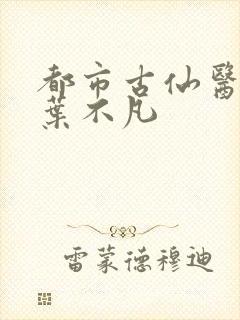 都市古仙醫
葉不凡
雷蒙德穆迪